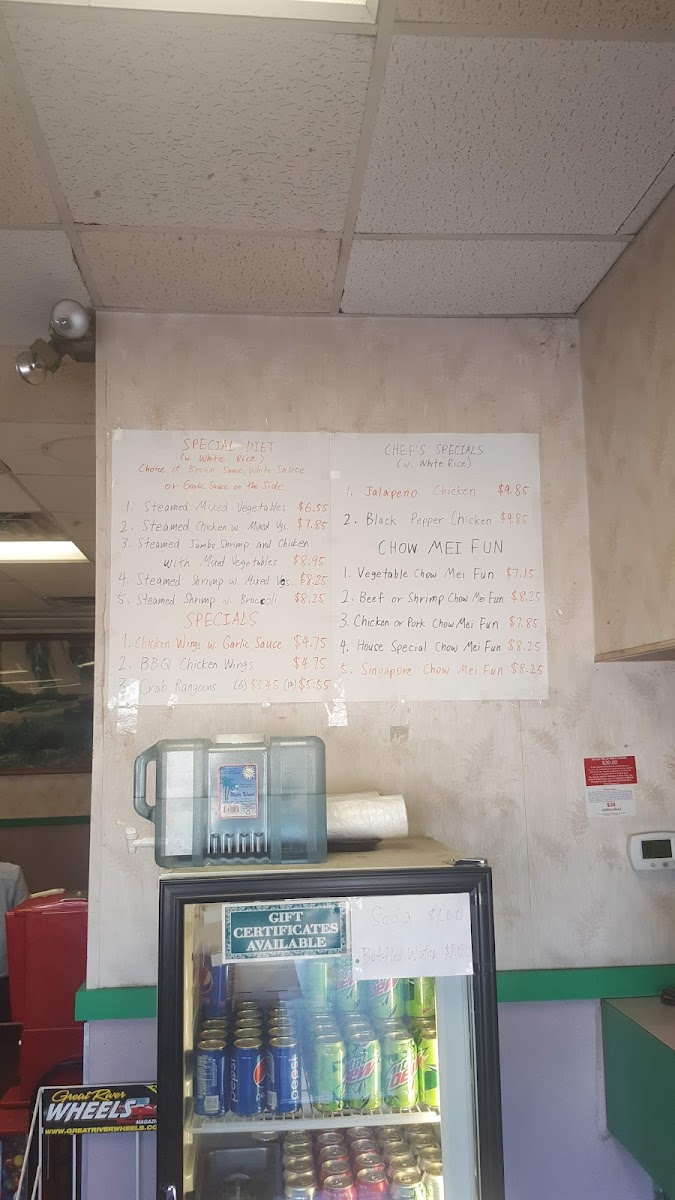 SPECIAL DIET
(w White Rice)
Choice of Brown Sauce, White Sauce
or Garlic Sauce on the Side
1. Steamed Mixed Vegetables $6.55
2. Steamed Chicken w. Mixed Vgs. $7.85
3. Steamed Jumbo Shrimp and Chicken
with Mixed Vegetables $8.95
4. Steamed Shrimp w. Mixed Vgs. $8.25
5. Steamed Shrimp w. Broccoli $8.25
SPECIALS
1. Chicken Wings w. Garlic Sauce $4.75
2. BBQ Chicken Wings $4.75
3. Crab Rangoons (6) $3.45 (12) $5.55
CHEF'S SPECIALS
(w. White Rice)
1. Jalapeno Chicken $9.85
2. Black Pepper Chicken $9.85
CHOW MEI FUN
1. Vegetable Chow Mei Fun $7.15
2. Beef or Shrimp Chow Mei Fun $8.25
3. Chicken or Pork Chow Mei Fun $7.85
4. House Special Chow Mei Fun $8.25
5. Singapore Chow Mei Fun $8.25
$30.00
$30
Water Island
GIFT
CERTIFICATES
AVAILABLE
Soda $1.00
Bottled Water $1.00
pepsi
pepsi
Dew
Dew
Great River
WHEELS
MAGAZ
WWW.GREATRIVERWHEELS.CO